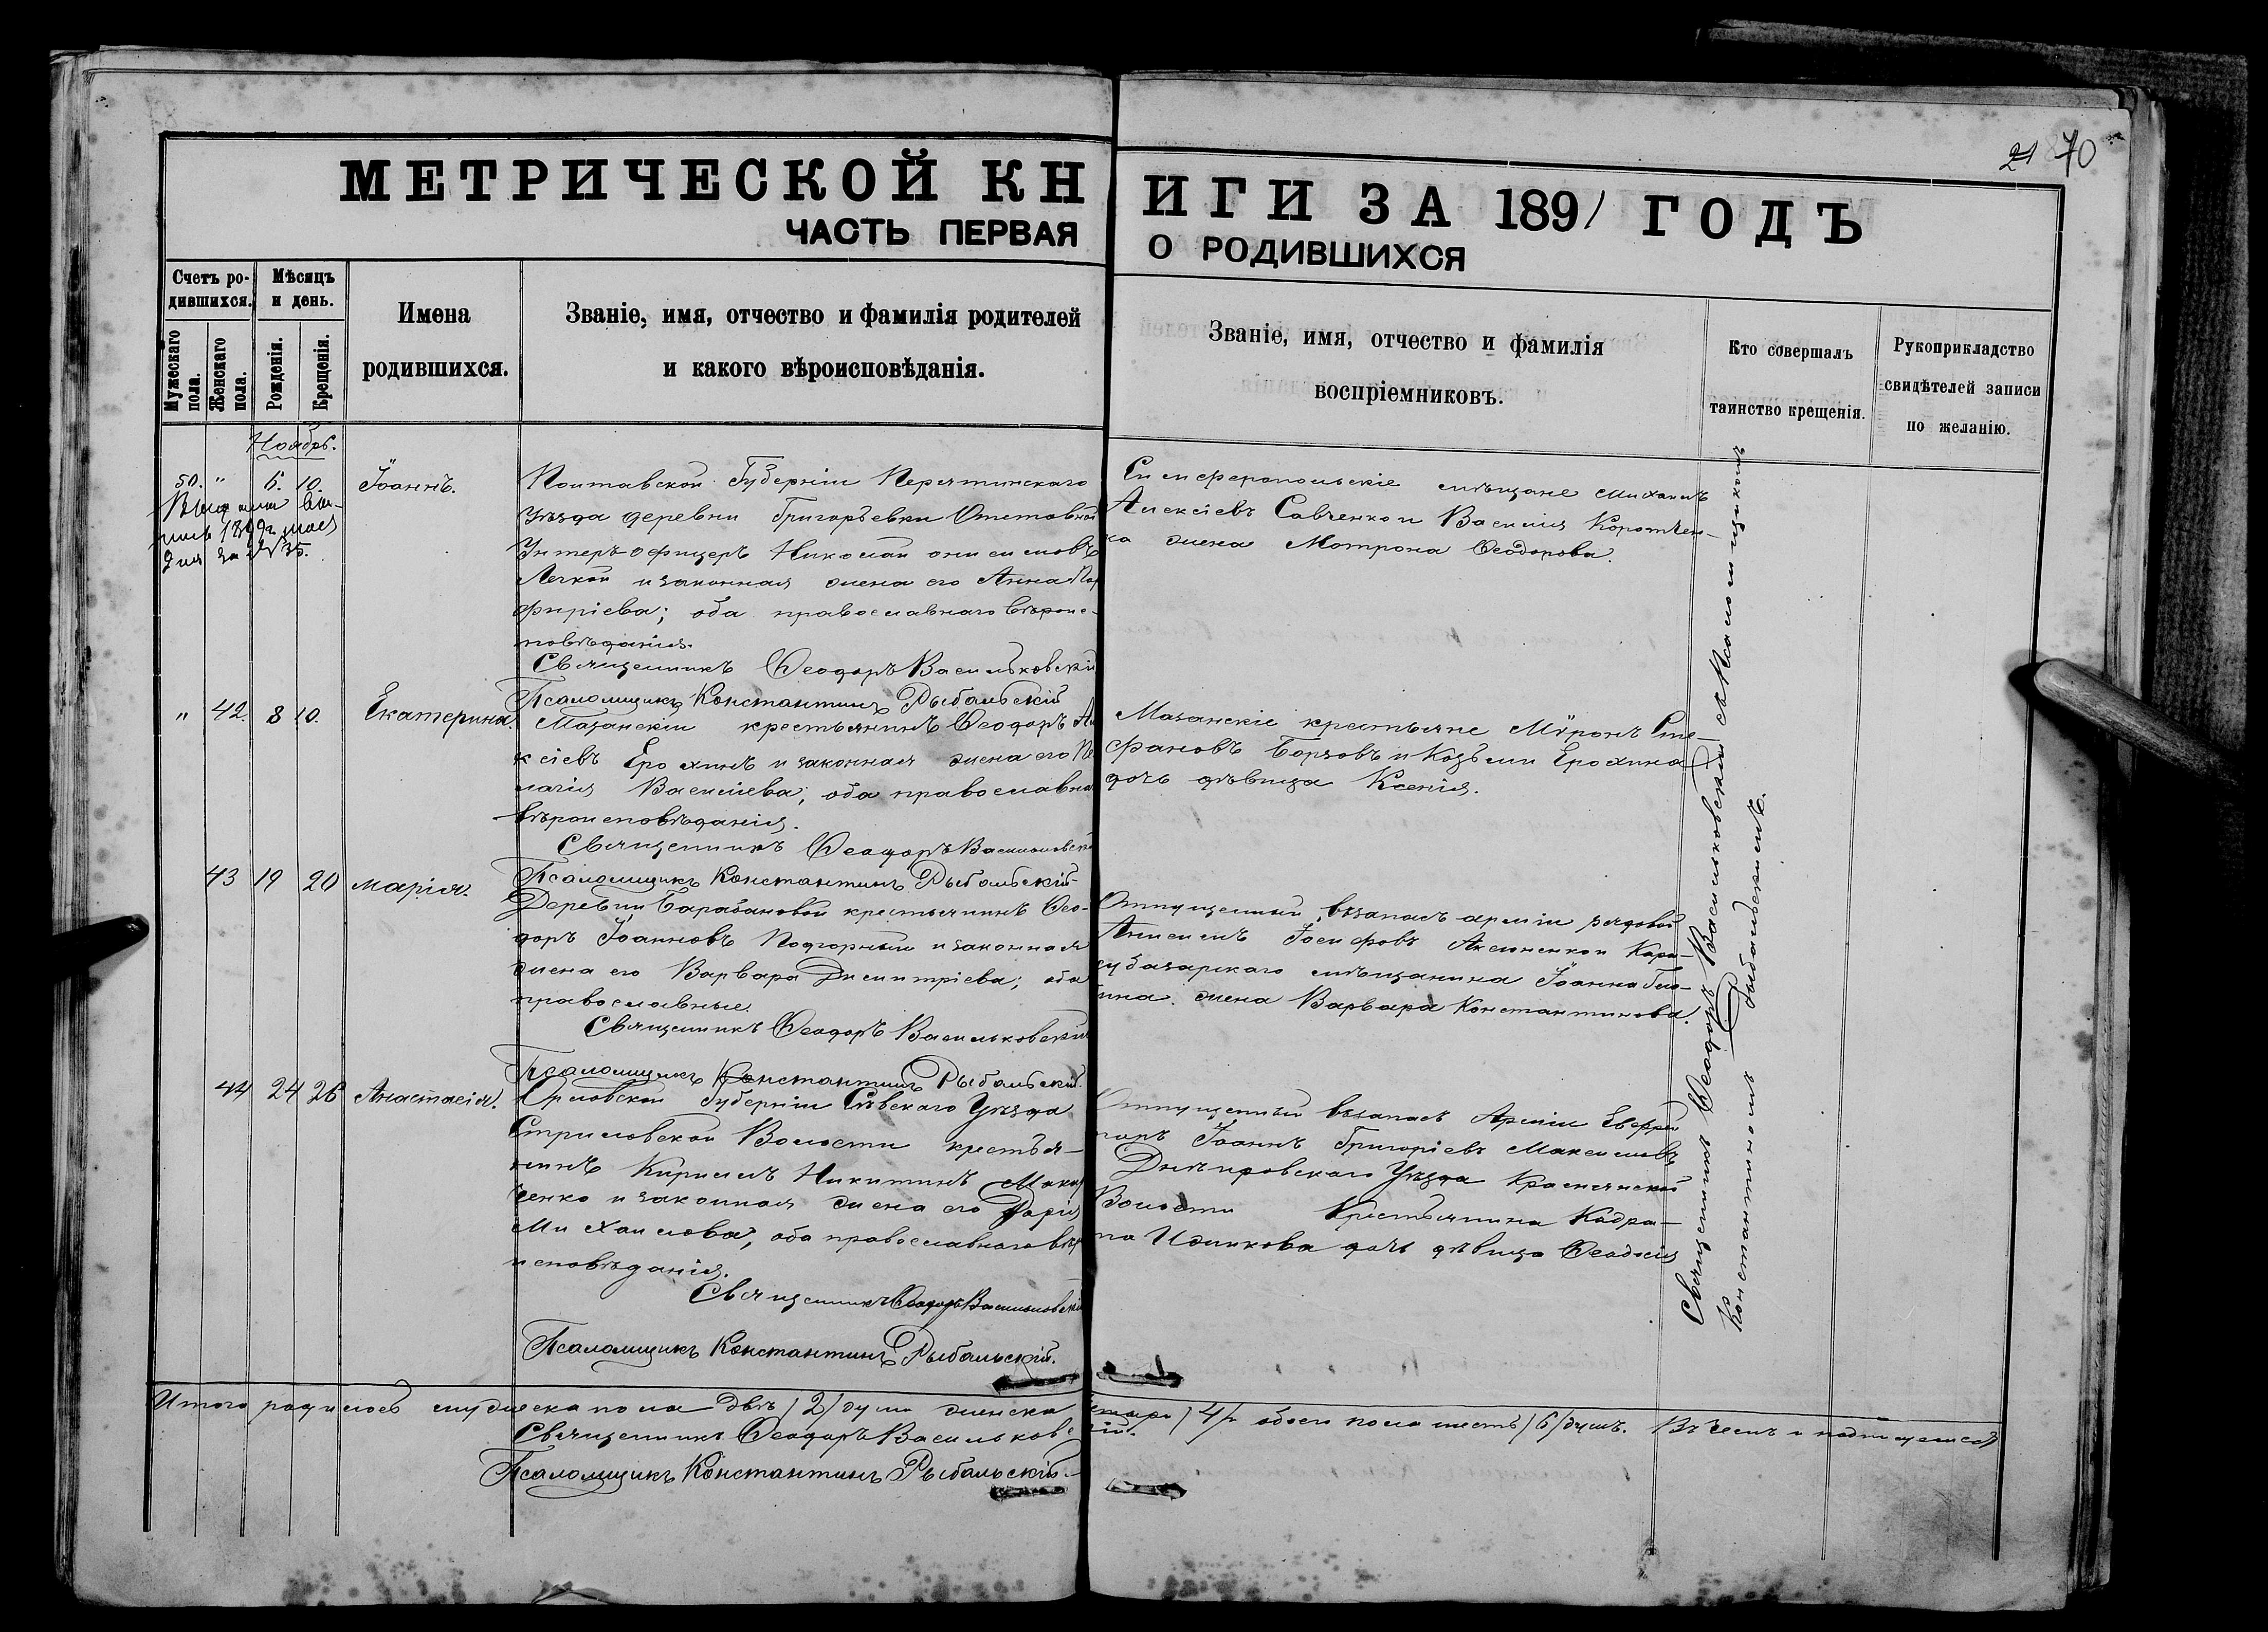 21 70
МЕТРИЧЕСКОЙ КНИГИ ЗА 1891 ГОДЪ
ЧАСТЬ ПЕРВАЯ О РОДИВШИХСЯ
Счетъ ро-
дившихся.
Мужескаго
пола.
Женскаго
пола.
Мѣсяцъ
и день.
Рожденія.
Крещенія.
Имена
родившихся.
Званіе, имя, отчество и фамилія родителей
и какого вѣроисповѣданія.
Званіе, имя, отчество и фамилія
воспріемниковъ.
Кто совершалъ
таинство крещенія.
Рукоприкладство
свидѣтелей записи
по желанію.
Ноябрь.
50. " 6. 10. Іоаннъ.
за № 35.
Полтавской Губерніи Пирятинскаго
Уѣзда деревни Григорьевки Отставной
Унтеръ-офицеръ Николай Онисимовъ
Легкой и законная жена его Анна Пор
фиріева; оба православнаго вѣроис-
повѣданія.
Священникъ Ѳеодоръ Васильковскій
Псаломщикъ Константинъ Рыбальскій
Симферопольскіе мѣщане Михаилъ
Алексіевъ Савченко и Василія Коротчен-
ка жена Мотрона Ѳеодорова.
" 42. 8 10. Екатерина.
Мазанскій крестьянинъ Ѳеодоръ Ал
ксіевъ Ерохинъ и законная жена его Пе
лагія Василіева; оба православна
вѣроисповѣданія.
Священникъ Ѳеодоръ Васильковскі
Псаломщикъ Константинъ Рыбальскій
Мазанскіе крестьяне Миронъ Сте-
фановъ Борзовъ и Козьмы Ерохина
дочь дѣвица Ксенія.
43 19 20 Марія.
Деревни Барабановой крестьянинъ Ѳео-
доръ Іоанновъ Подгорный и законная
жена его Варвара Димитріева; оба
православные.
Священникъ Ѳеодоръ Васильковскій
Псаломщикъ Константинъ Рыбальскій.
Отпущенный въ запасъ арміи рядовой
Анисимъ Іосифовъ Аксіоненко и Кара-
субазарскаго мѣщанина Іоанна
жена Варвара Константинова.
44 24 26 Анастасія.
Орловской Губерніи Сѣвскаго Уѣзда
Волости крестья-
нинъ Кириллъ Никитинъ
ченко и законная жена его Дарія
Михаилова; оба православнаго вѣр
исповѣданія.
Священникъ Ѳеодоръ Васильковскій
Псаломщикъ Константинъ Рыбальскій.
Отпущенный въ запасъ Арміи Ефрей
торъ Іоаннъ Григоріевъ Максимовъ
Днѣпровскаго Уѣзда
Волости Крестьянина Кодра-
та дочь дѣвица Ѳеодосія
Священникъ Ѳеодоръ Васильковскій съ Псаломщикомъ
Константиномъ Рыбальскимъ.
Итого родилось мужеска пола двѣ /2/ души женска четыре /4/ обоего пола шесть /6/ душъ. Въ чемъ и подписуемся
Священникъ Ѳеодоръ Васильковскій.
Псаломщикъ Константинъ Рыбальскій.